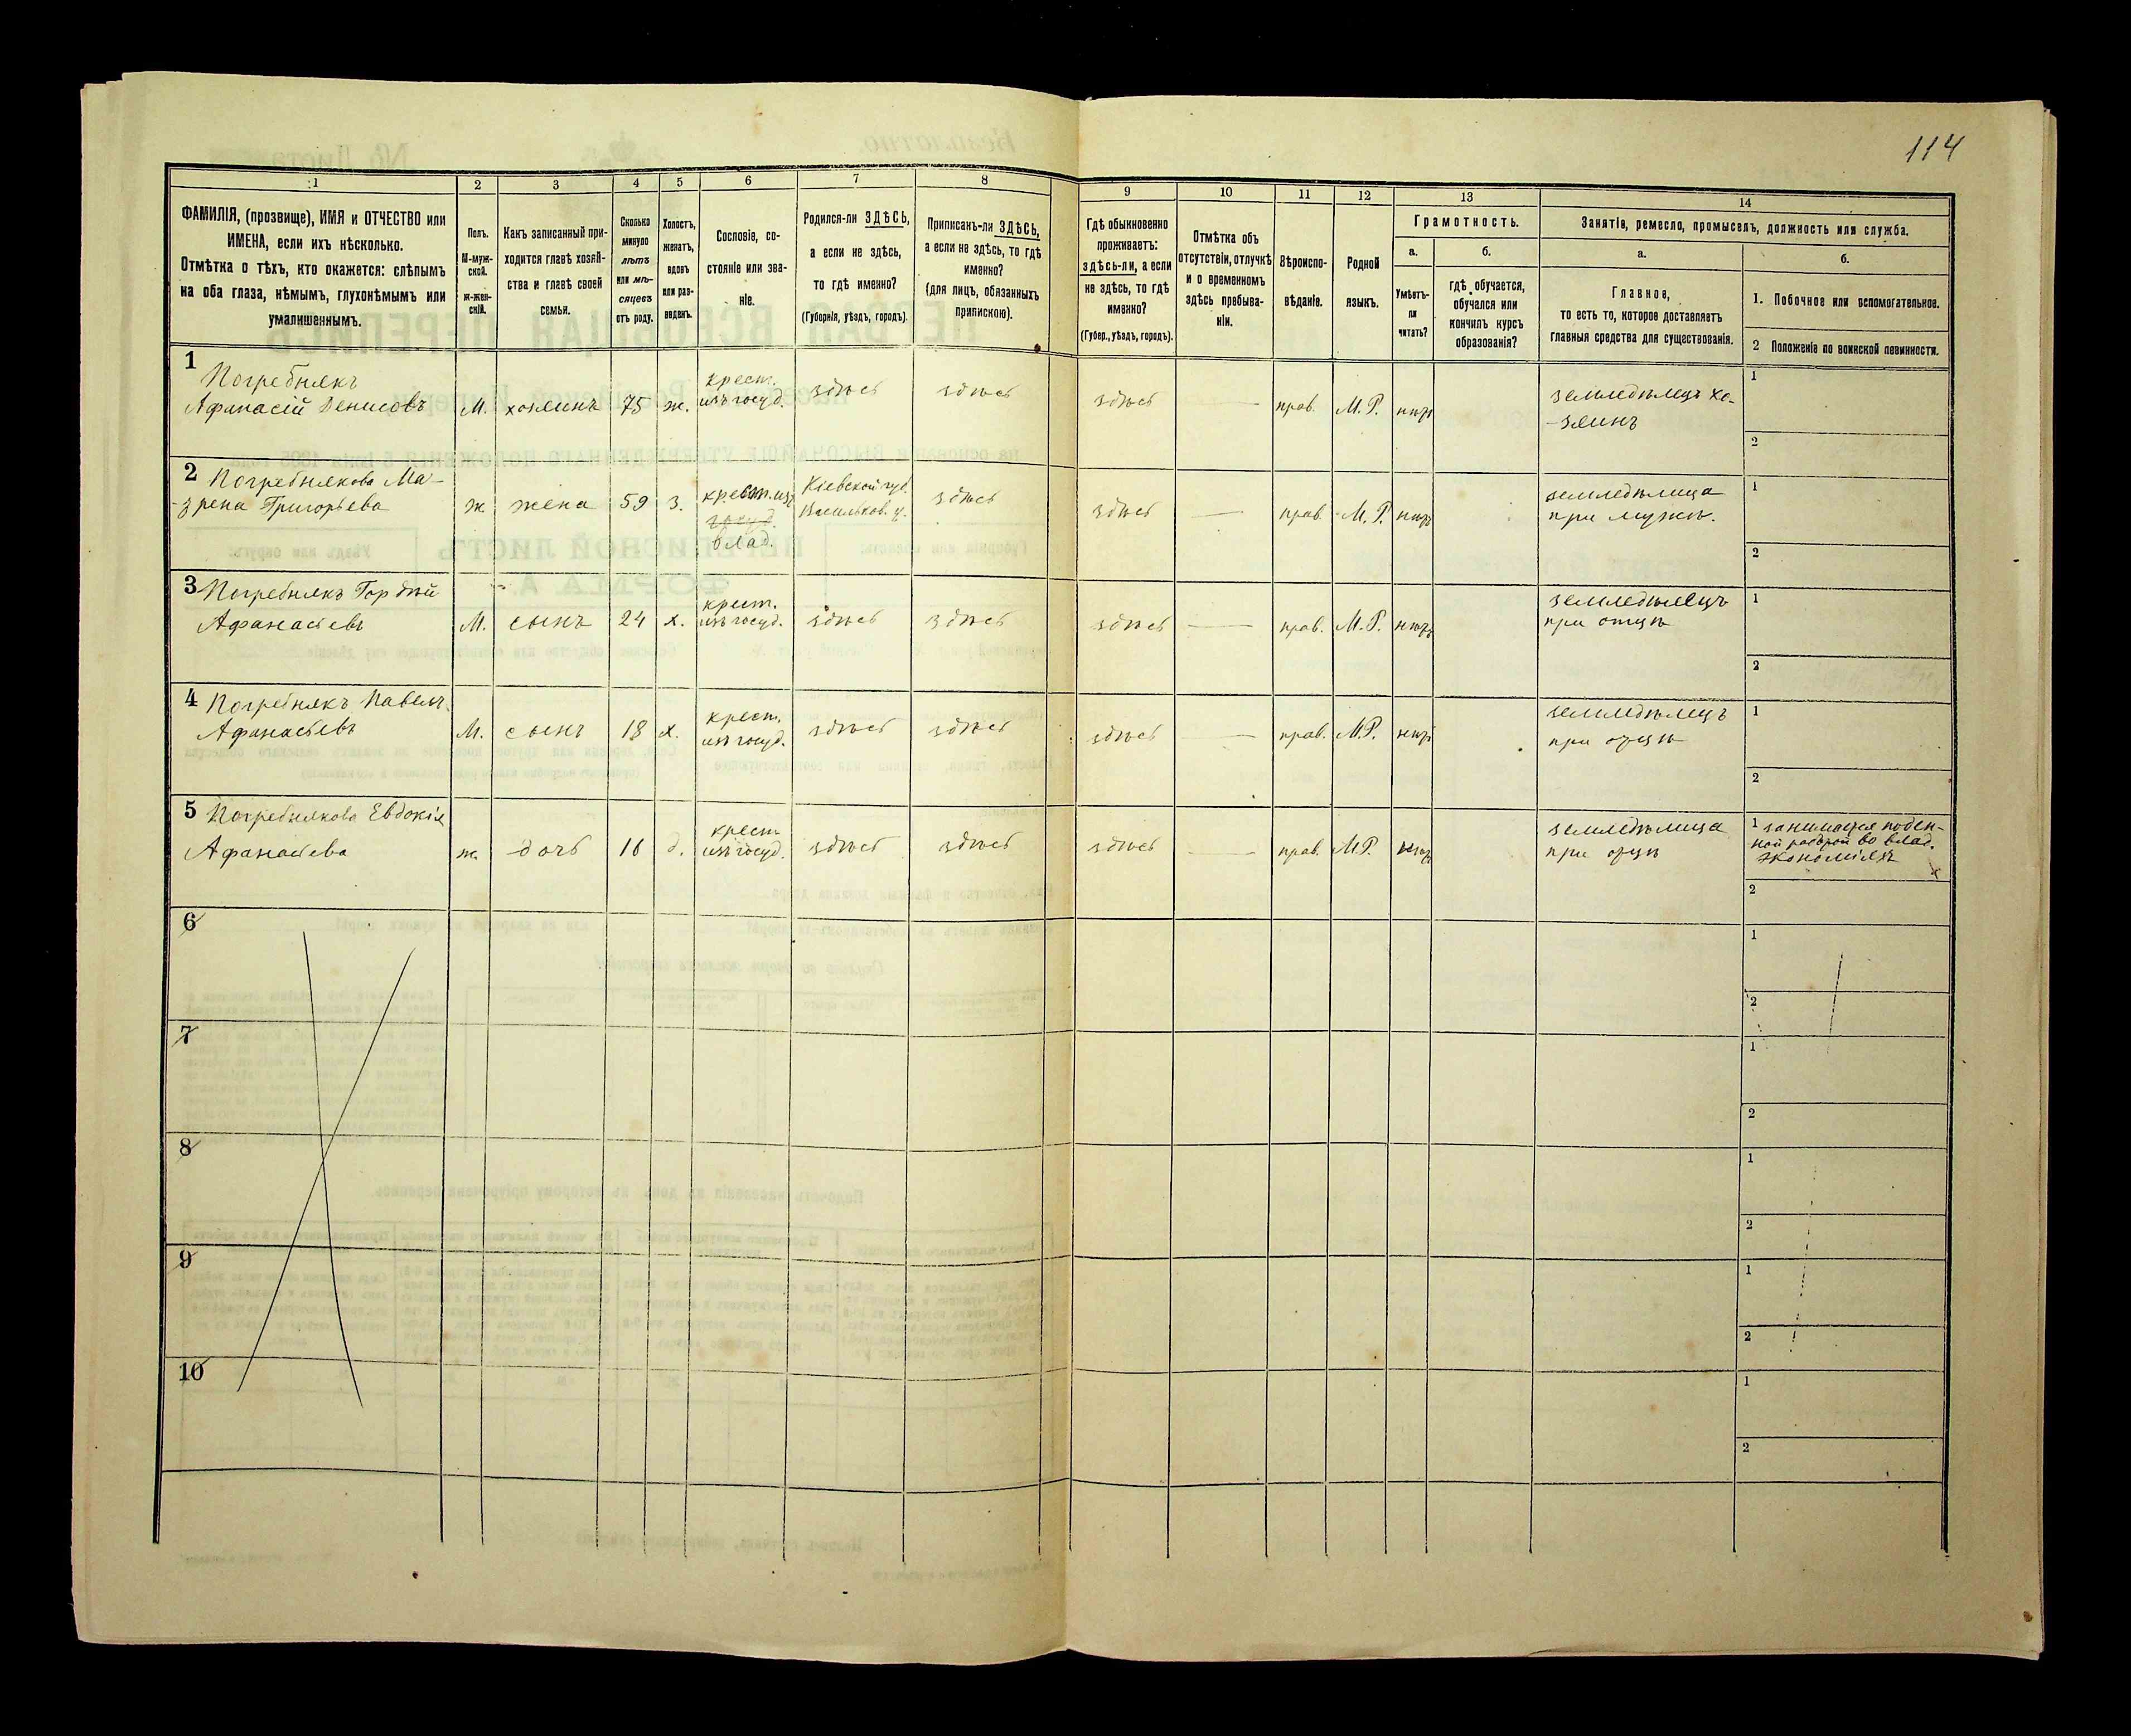 114
1 2 3 4 5 6 7 8 9 10 11 12 13 14
ФАМИЛІЯ, (прозвище), ИМЯ и ОТЧЕСТВО или
ИМЕНА, если ихъ нѣсколько.
Отмѣтка о тѣхъ, кто окажется: слѣпымъ
на оба глаза, нѣмымъ, глухонѣмымъ или
умалишеннымъ.
Полъ.
М-муж-
ской.
ж-жен-
скій.
Какъ записанный при-
ходится главѣ хозяй-
ства и главѣ своей
семьи.
Сколько
минуло
лѣтъ
или мѣ-
сяцевъ
отъ роду.
Холостъ,
женатъ,
вдовъ
или раз-
веденъ.
Сословіе, со-
стояніе или зва-
ніе.
Родился-ли ЗДѢСЬ,
а если не здѣсь,
то гдѣ именно?
(Губернія, уѣздъ, городъ).
Приписанъ-ли ЗДѢСЬ,
а если не здѣсь, то гдѣ
именно?
(для лицъ, обязанныхъ
припискою).
Гдѣ обыкновенно
проживаетъ:
здѣсь-ли, а если
не здѣсь, то гдѣ
именно?
(Губер., уѣздъ, городъ).
Отмѣтка объ
отсутствіи, отлучкѣ
и о временномъ
здѣсь пребыва-
ніи.
Вѣроиспо-
вѣданіе.
Родной
языкъ.
Грамотность.
а.
Умѣетъ-
ли
читать?
б.
гдѣ обучается,
обучался или
кончилъ курсъ
образованія?
Занятія, ремесло, промыселъ, должность или служба.
а.
Главное,
то есть то, которое доставляетъ
главныя средства для существованія.
б.
1. Побочное или вспомогательное.
2 Положеніе по воинской повинности.
1 Погребнякъ
Афанасій Денисовъ М. хозяинъ 75 ж. крест. изъ госуд. здѣсь здѣсь здѣсь — прав. М.Р. нѣтъ земледѣлецъ хо-
-зяинъ
1
2
2 Погребнякова Ма-
-зрена Григорьева ж жена 59 з. крестн. изъ
влад. Кіевской губ.
Васильков. у. здѣсь здѣсь — прав. М.Р. нѣтъ земледѣлица
при мужѣ.
1
2
3 Погребнякъ Гордѣй
Афанасьевъ М. сынъ 24 х. крест.
изъ госуд. здѣсь здѣсь здѣсь — прав. М.Р. нѣтъ земледѣлецъ
при отцѣ
1
2
4 Погребнякъ Павелъ
Афанасьевъ М. сынъ 18 х. крест.
изъ госуд. здѣсь здѣсь здѣсь — прав. М.Р. нѣтъ земледѣлецъ
при отцѣ
1
2
5 Погребнякова Евдокія
Афанасьева ж. дочь 16 д. крест.
изъ госуд. здѣсь здѣсь здѣсь — прав. М.Р. нѣтъ земледѣлица
при отцѣ
1 занимается поден-
ной работой во влад.
экономіяхъ
2
6
1
2
7
1
2
8
1
2
9
1
2
10
1
2